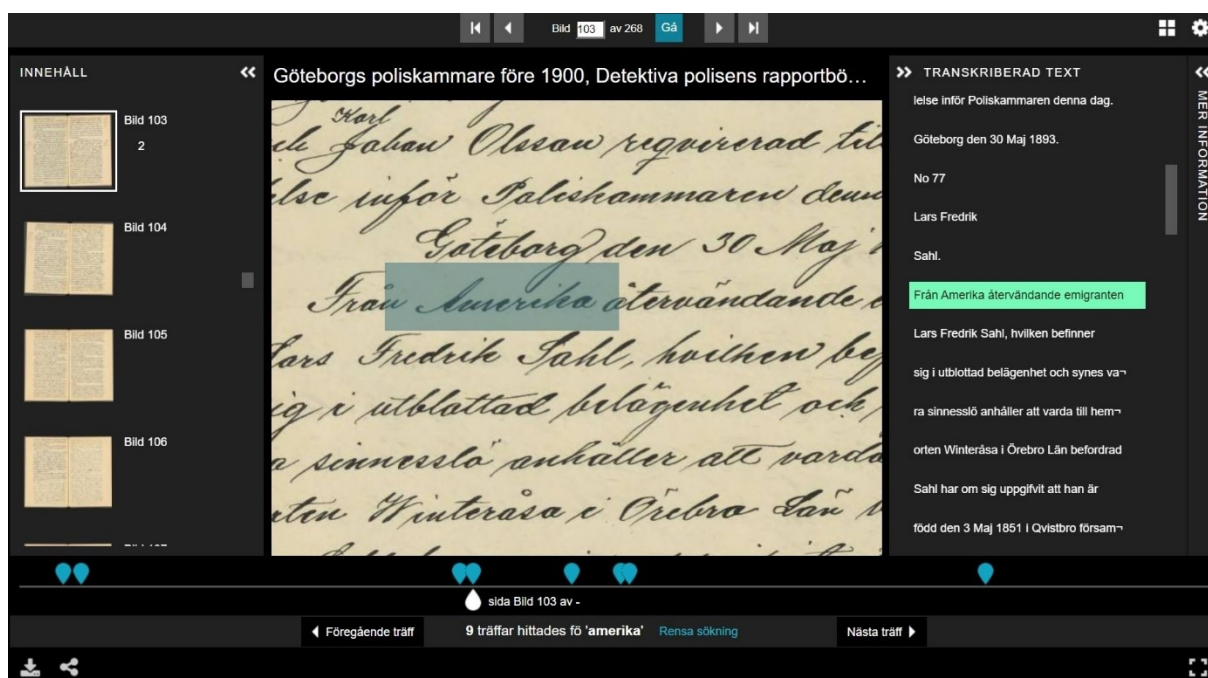 Bild 103 av 268 Gå
INNEHÅLL
Bild 103
2
Bild 104
Bild 105
Bild 106
Göteborgs poliskammare före 1900, Detektiva polisens rapportbö…
Karl
Johan Olsson reqvirerad til
else inför Poliskammaren denn
Göteborg den 30 Maj
Från Amerika återvändande e
Lars Fredrik Sahl, hvilken bef
sig i utblottad belägenhet och
ra sinnesslö anhåller att varda
orten Winteråsa i Örebro Län
TRANSKRIBERAD TEXT
lelse inför Poliskammaren denna dag.
Göteborg den 30 Maj 1893.
No 77
Lars Fredrik
Sahl.
Från Amerika återvändande emigranten
Lars Fredrik Sahl, hvilken befinner
sig i utblottad belägenhet och synes va¬
ra sinnesslö anhåller att varda till hem¬
orten Winteråsa i Örebro Län befordrad
Sahl har om sig uppgifvit att han är
född den 3 Maj 1851 i Qvistbro försam¬
MER INFORMATION
sida Bild 103 av -
Föregående träff
9 träffar hittades fö 'amerika'
Rensa sökning
Nästa träff